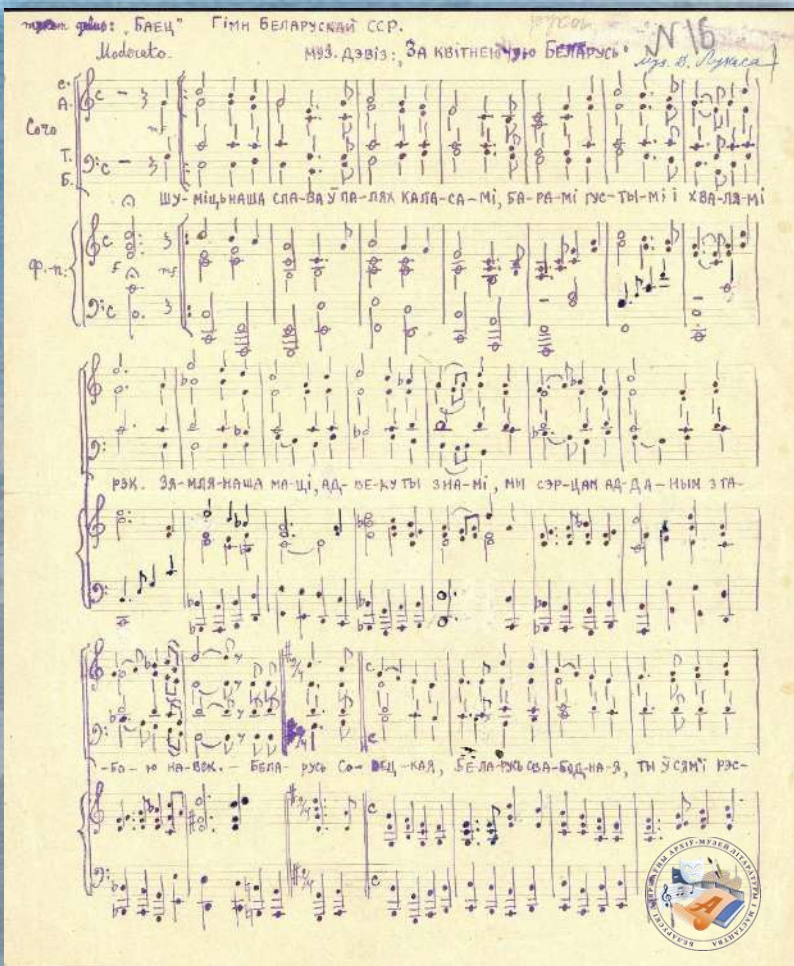 "БАЕЦ" ГІМН БЕЛАРУСКАЙ ССР.
Moderato. муз. дэвіз: "ЗА КВІТНЕЮЧУЮ БЕЛАРУСЬ" №16
муз. Д. Лукаса
С.
А.
Сого
Т.
Б.
mf
ШУ-МІЦЬ НАША СЛА-ВА Ў ПА-ЛЯХ КАЛА-СА-МІ, БА-РА-МІ ГУС-ТЫ-МІ І ХВА-ЛЯ-МІ
ф.-п.:
f mf
РЭК. ЗЯ-МЛЯ-НАША МА-ЦІ, АД-ВЕ-КУ ТЫ З НА-МІ, МЫ СЭР-ЦАМ АД-ДА-НЫМ З ТА-
-БО-Ю НА-ВЕК.- БЕЛА-РУСЬ СО-ВЕЦ-КАЯ, БЕ-ЛА-РУСЬ СВА-БОД-НА-Я, ТЫ Ў СЯМ'І РЭС-
БЕЛАРУСКІ ДЗЯРЖАЎНЫ АРХІЎ-МУЗЕЙ ЛІТАРАТУРЫ І МАСТАЦТВА